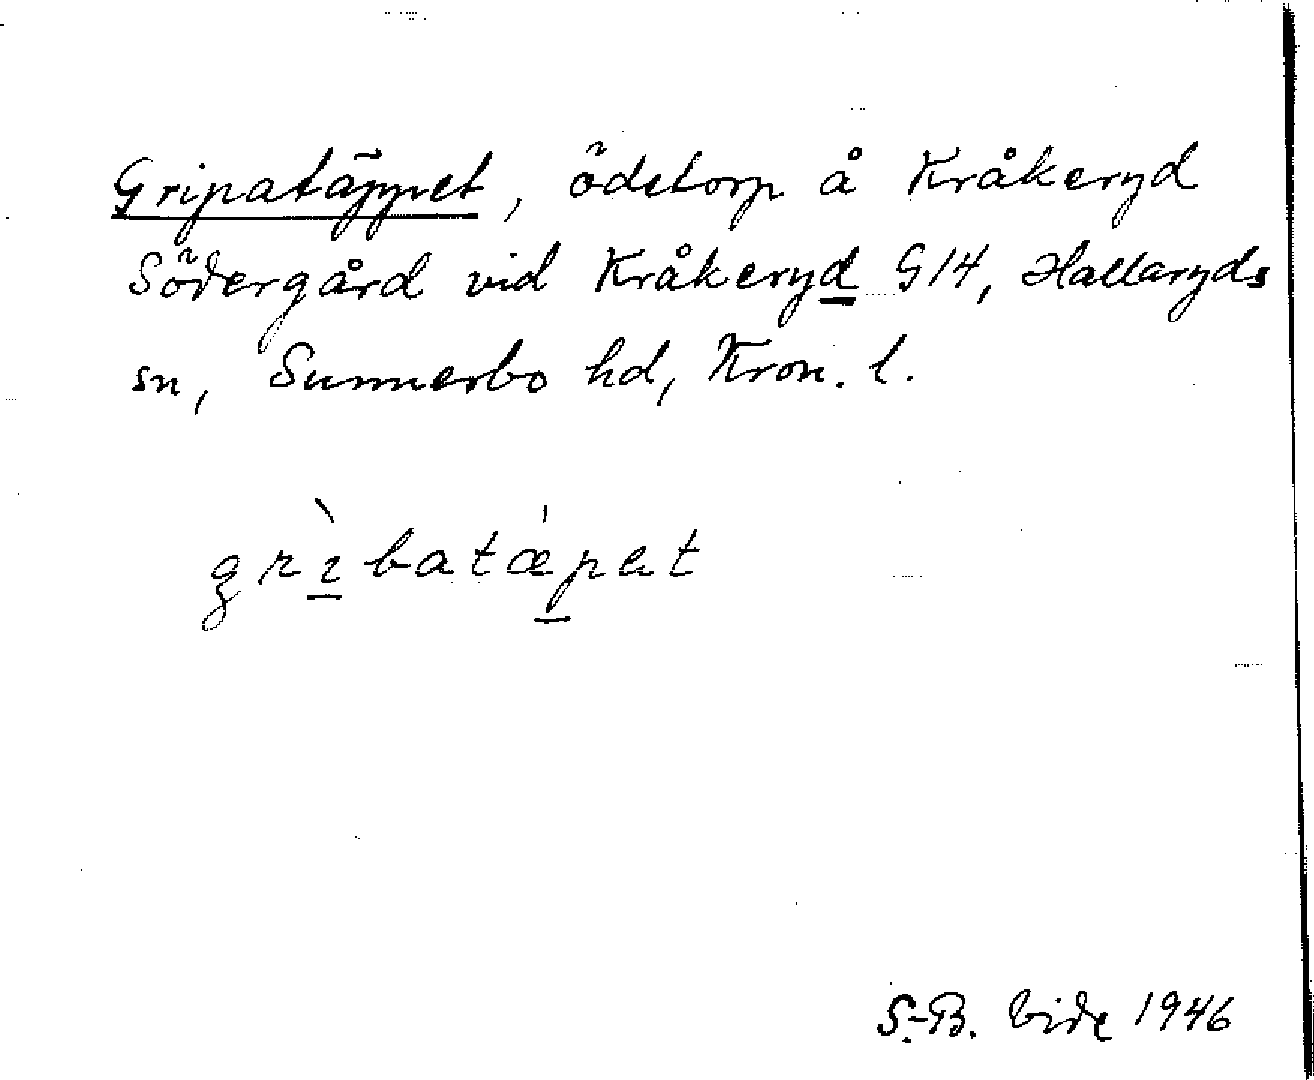 Gripatäppet, ödetorp å Kråkeryd
Södergård vid Kråkeryd G14, Hallaryds
sn, Sunnerbo hd, Kron. l.
grìbatæ̍pet
S.-B. Vide 1946